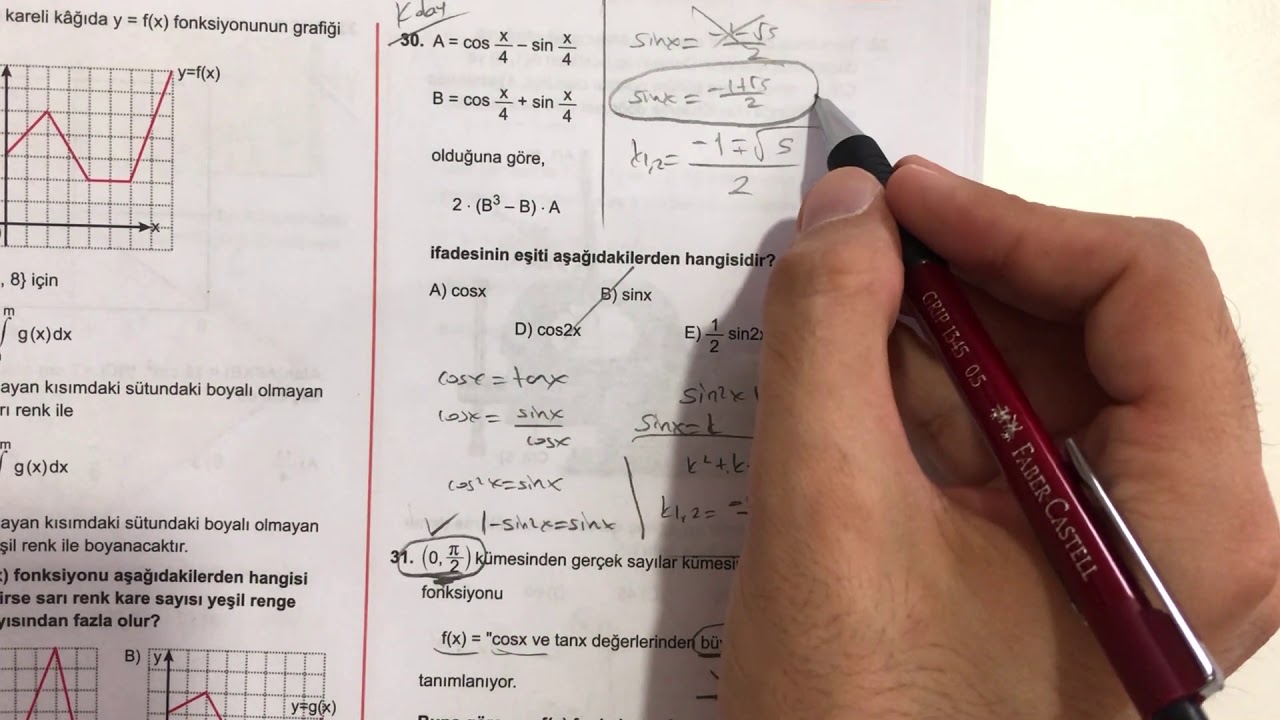 kareli kâğıda y = f(x) fonksiyonunun grafiği
y=f(x)
x
, 8} için
m
∫ g(x)dx
ayan kısımdaki sütundaki boyalı olmayan
rı renk ile
m
∫ g(x)dx
ayan kısımdaki sütundaki boyalı olmayan
şil renk ile boyanacaktır.
) fonksiyonu aşağıdakilerden hangisi
irse sarı renk kare sayısı yeşil renge
yısından fazla olur?
B) y
y=g(x)
30. A = cos x/4 – sin x/4
B = cos x/4 + sin x/4
olduğuna göre,
2 · (B³ – B) · A
ifadesinin eşiti aşağıdakilerden hangisidir?
A) cosx B) sinx
D) cos2x E) 1/2 sin2x
sinx = -1-√5/2
sinx = -1+√5/2
k1,2 = -1∓√5/2
cosx = tanx
cosx = sinx/cosx
cos²x = sinx
1-sin²x = sinx
sin²x +
sinx = k
k²+k-
k1,2 = -
31. (0, π/2) kümesinden gerçek sayılar kümesi
fonksiyonu
f(x) = "cosx ve tanx değerlerinden bü
tanımlanıyor.
GRIP 1345 0.5
FABER CASTELL